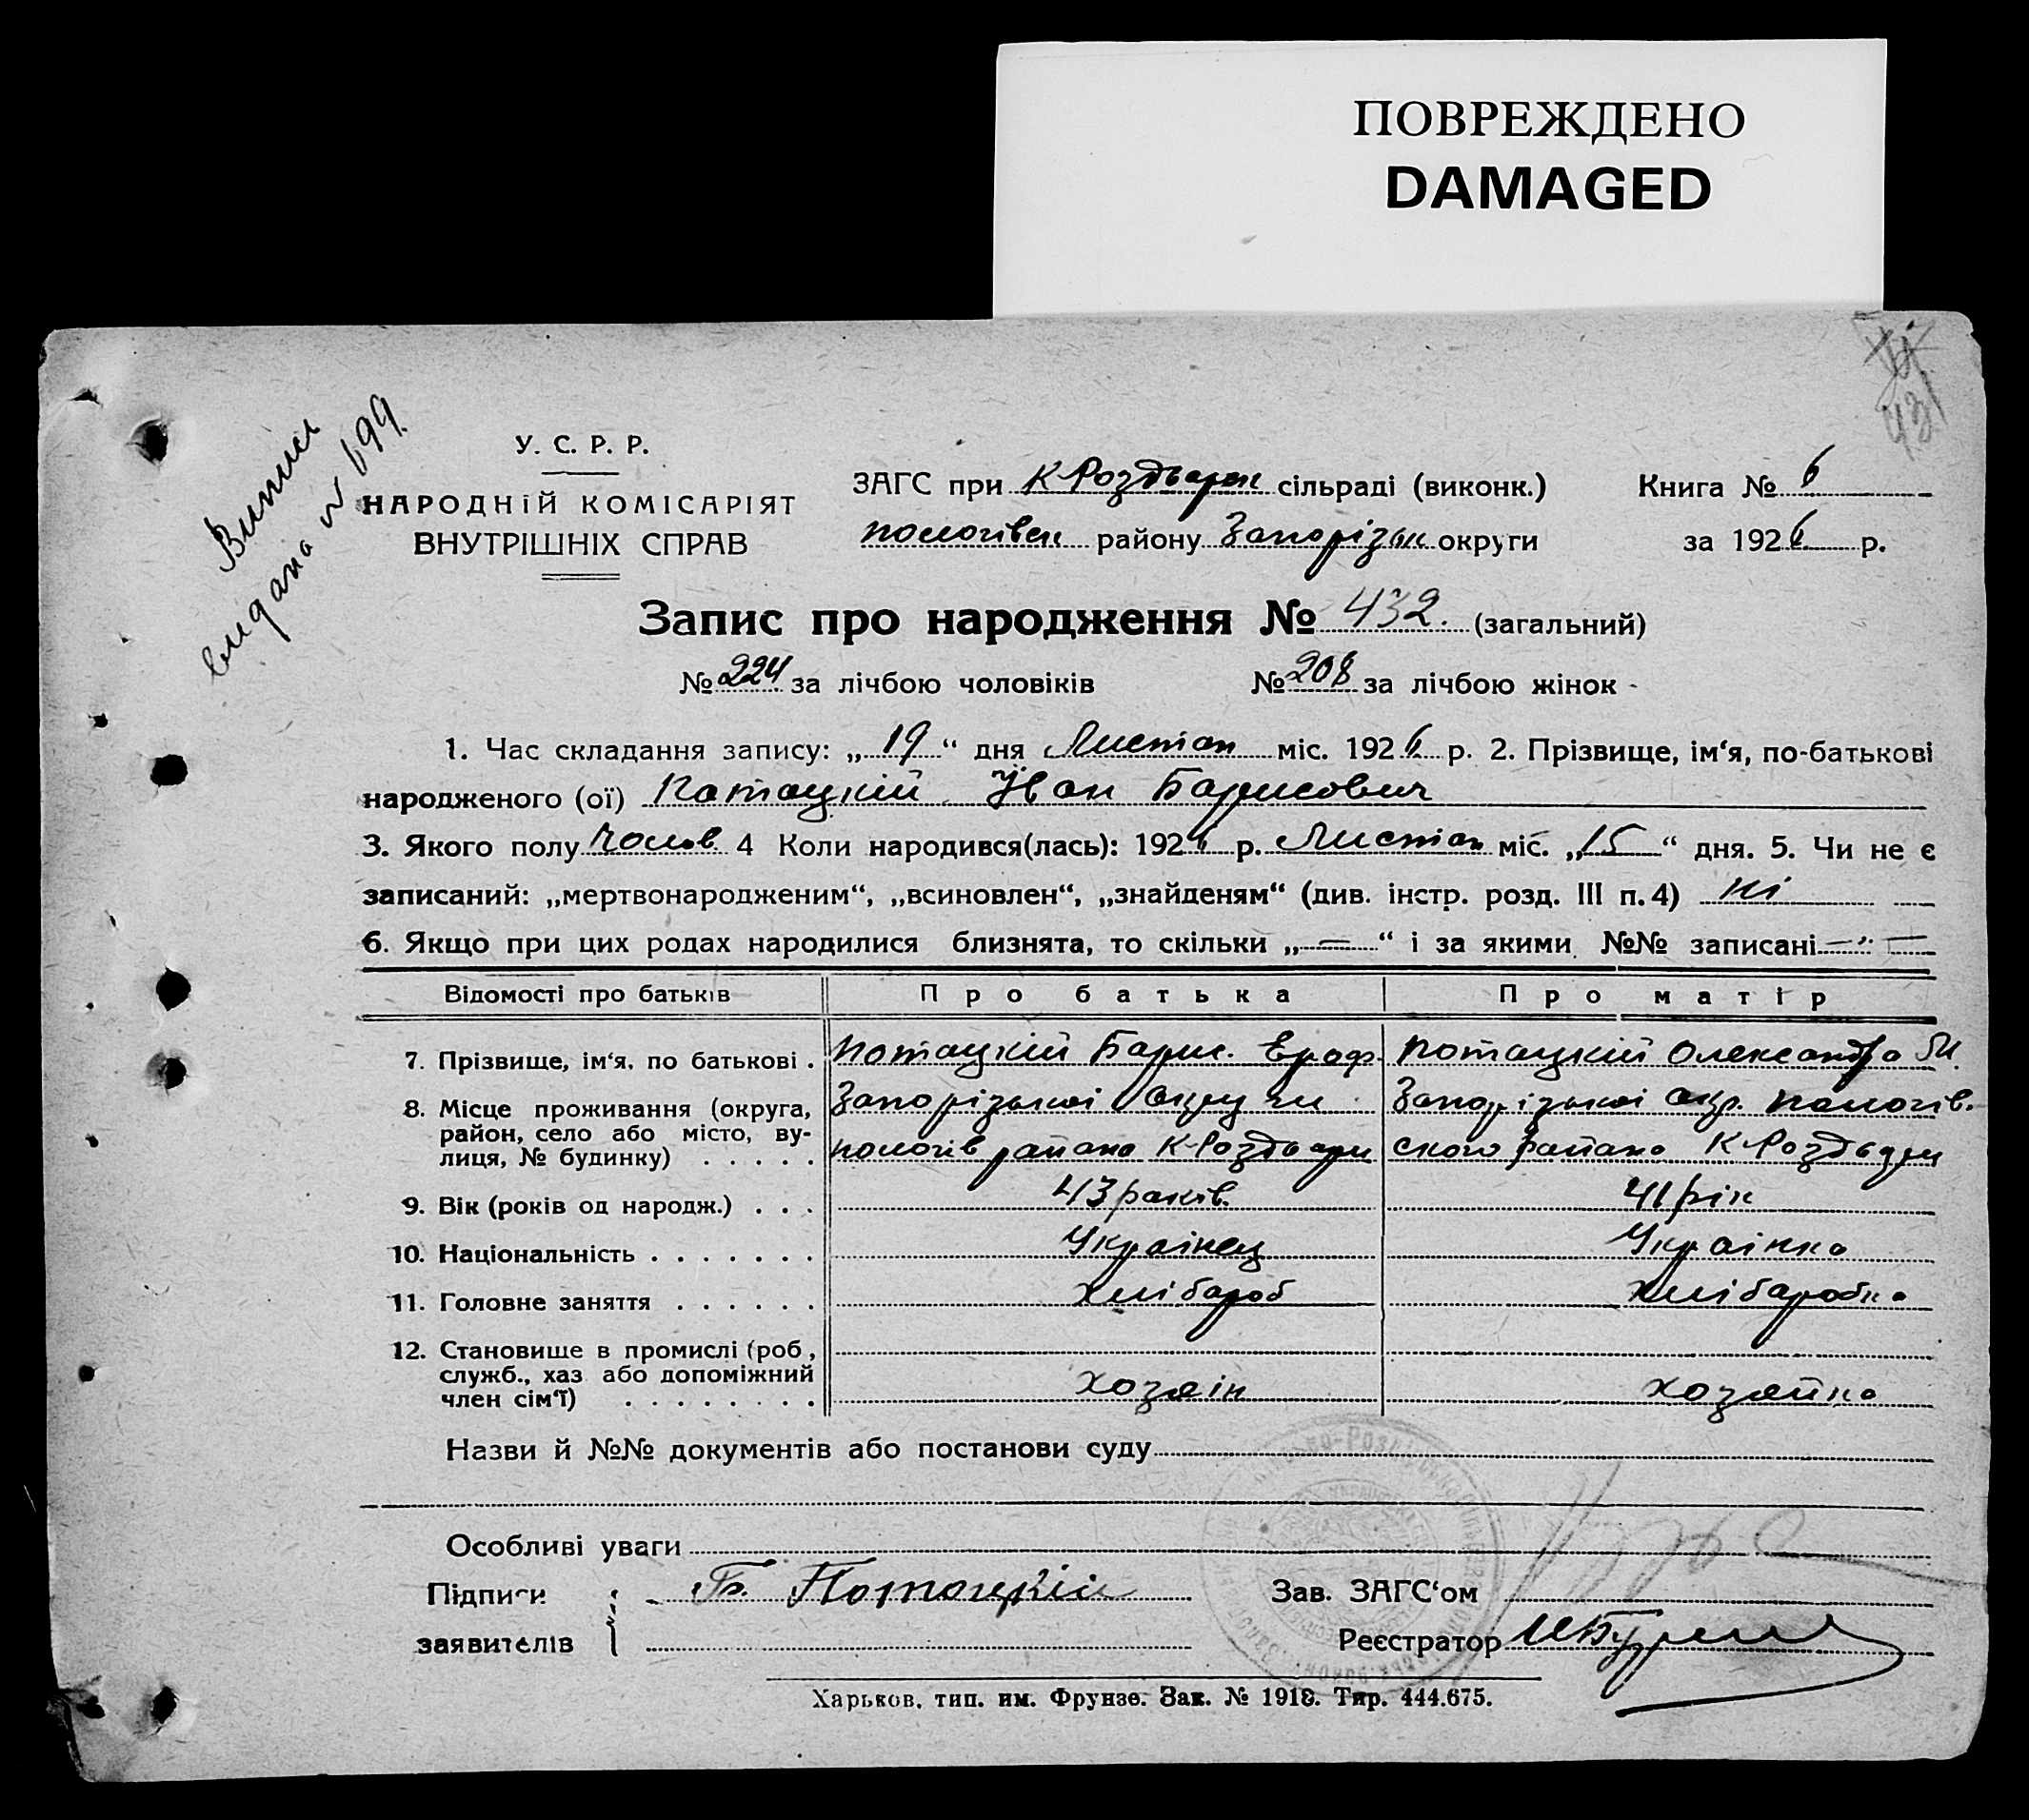 ПОВРЕЖДЕНО
DAMAGED
Випис
видана № 699.
431
У. С. Р. Р.
НАРОДНІЙ КОМІСАРІЯТ
ВНУТРІШНІХ СПРАВ
ЗАГС при К-Роздварск сільраді (виконк.)
пологівск району Запорізьк округи
Книга № 6
за 1926 р.
Запис про народження № 432. (загальний)
№ 224 за лічбою чоловіків № 208 за лічбою жінок
1. Час складання запису: „19“ дня Листоп міс. 1926 р. 2. Прізвище, ім‘я, по-батькові
народженого (ої) Потоцкій Іван Барисович
3. Якого полу Чолов 4 Коли народився(лась): 1926 р. Листоп міс. „15“ дня. 5. Чи не є
записаний: „мертвонародженим“, „всиновлен“, „знайденям“ (див. інстр. розд. III п. 4) ні
6. Якщо при цих родах народилися близнята, то скільки „—“ і за якими №№ записані —"—
Відомості про батьків Про батька Про матір
7. Прізвище, ім‘я, по батькові . Потоцкій Барис. Ероф. Потоцкій Олександра
8. Місце проживання (округа, Запорізької округи Запорізької окр. пологів.
район, село або місто, ву-
лиця, № будинку) . . . . . пологів району К-Роздвари ского району К-Роздвари
9. Вік (років од народж.) . . . 43 років. 41 рік
10. Національність . . . . . . . Україиец Українка
11. Головне заняття . . . . . . Хлібароб Хлібаробка
12. Становище в промислі (роб,
служб., хаз або допоміжний
член сім‘ї) . . . . . . . . Хозяін Хозяйка
Назви й №№ документів або постанови суду
Особливі уваги
Підписи Б. Потоцкій Зав. ЗАГС‘ом
заявителів Реєстратор
Харьков, тип. им. Фрунзе. Зак. № 1918. Тир. 444.675.